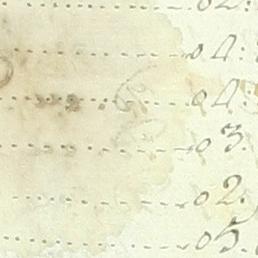 02:
04:
04:
03:
02:
05: